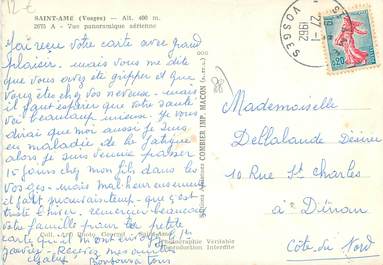 12 €
SAINT-AMÉ (Vosges) — Alt. 400 m.
2675 A - Vue panoramique aérienne
J'ai reçu votre carte avec grand
plaisir. mais vous me dite
que vous avez été gripper et que
vous été chez vos neveux. mais
il faut espérer que votre santé
va beaucoup mieux. Je vous
dirai que moi aussi je suis
en maladie de la fatigue
alors je suis venue passer
15 jours chez mon fils dans les
vosges. mais malheureusement
il fait mauvais temps. que c'est
triste l'hiver. remercier beaucoup
votre famille pour la petite
carte qu'il m'ont envoyé
janvier. Recevez mes amitiés
Bonjour à tous
COMBIER IMP. MACON
Photographie Véritable
Reproduction Interdite
VOSGES
27-1
1962
0,20
Mademoiselle
Dellalande Désirée
10 Rue St Charles
à Dinan
Côte du Nord